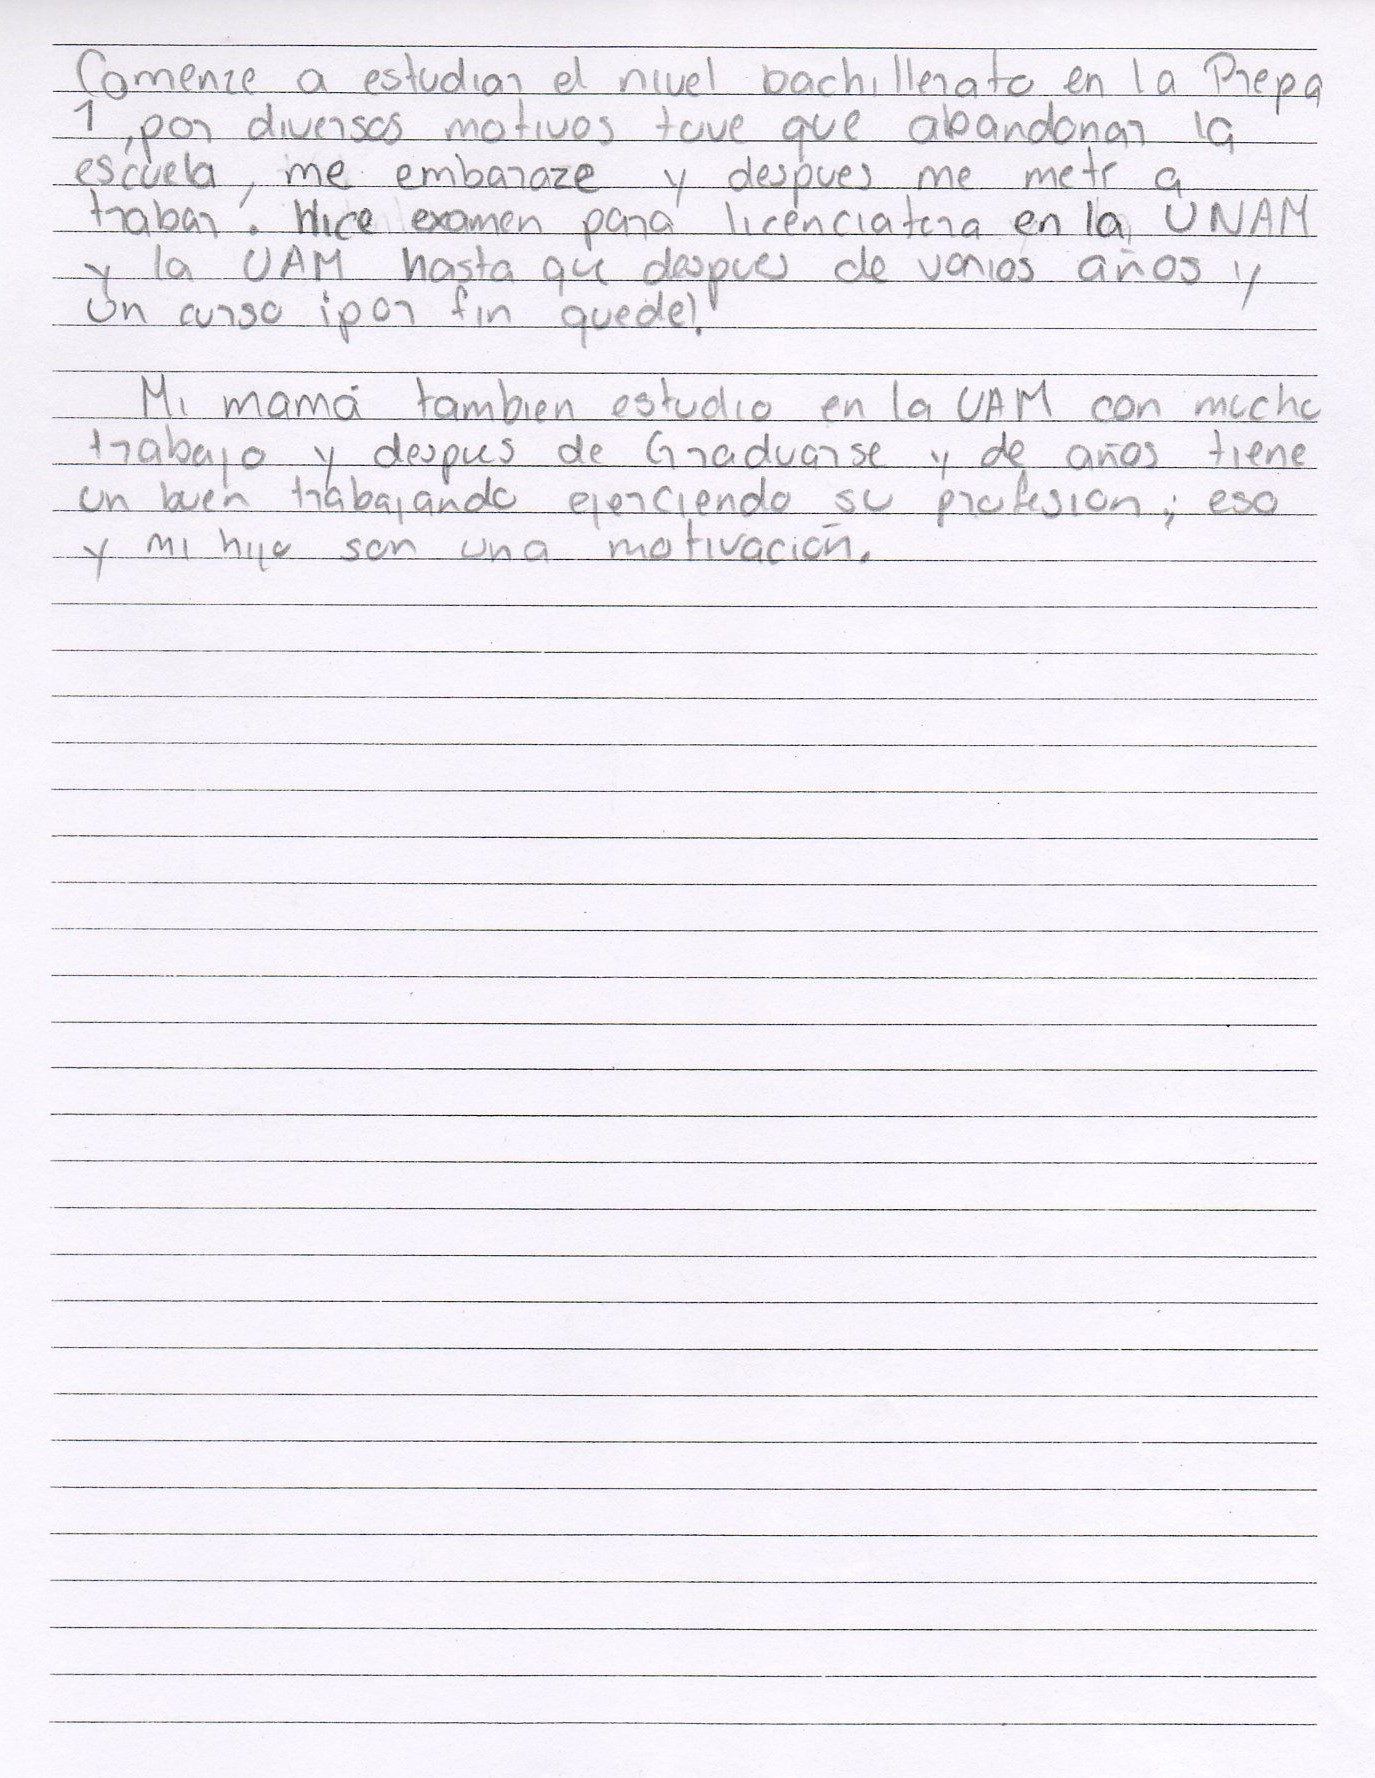 Comenze a estudiar el nivel bachillerato en la Prepa
1, por diversos motivos tuve que abandonar la
escuela, me embaraze y despues me metí a
trabar. Hice examen para licenciatura en la UNAM
y la UAM hasta que despues de varios años y
un curso ¡por fin quede!
Mi mamá tambien estudio en la UAM con mucho
trabajo y despues de Graduarse y de años tiene
un buen trabajando ejerciendo su profesion; eso
y mi hijo son una motivación.